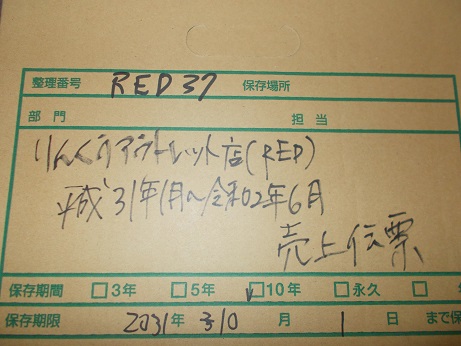 整理番号 RED37 保存場所
部門 担当
りんくうアウトレット店(RED)
平成31年1月〜令和02年6月
売上伝票
保存期間 □3年 □5年 □10年 □永久 □
保存期限 2031年 10月 1日 まで保